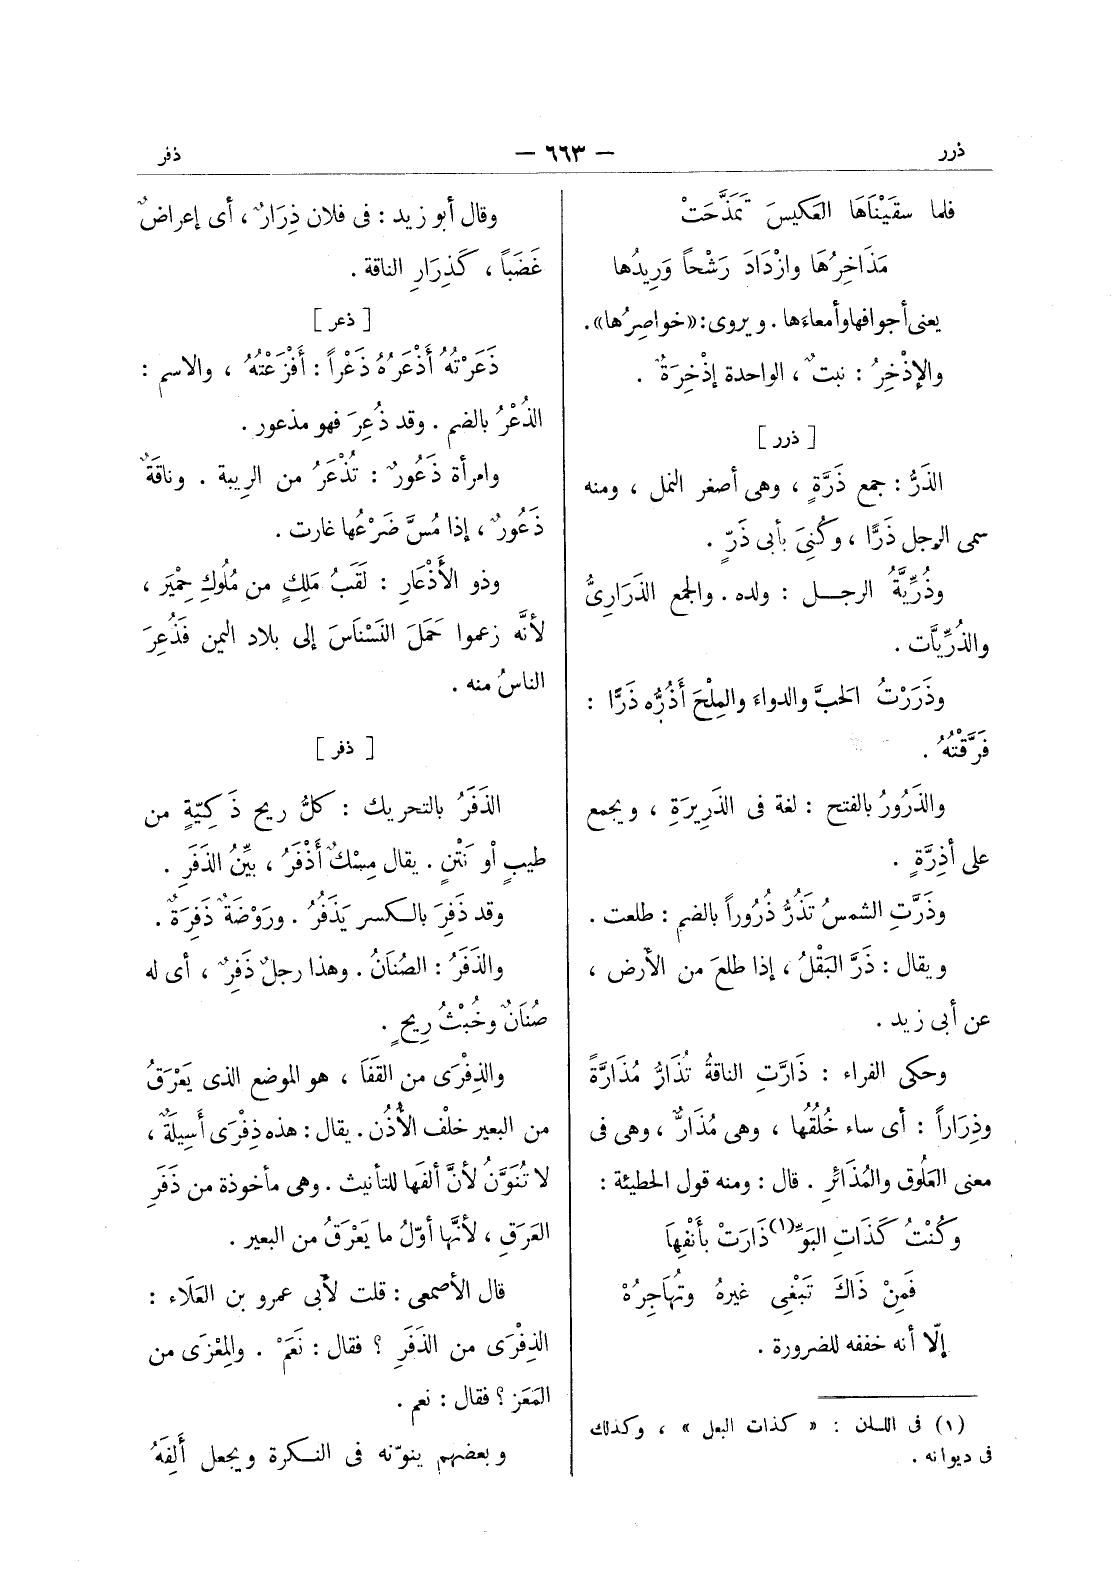 ذرر
— ٦٦٣ —
ذفر
فلما سقَيْنَاهَا العَكيسَ تَمَذَّحَتْ
مَذَاخِرُهَا وازْدَادَ رَشْحاً وَرِيدُها
يعنى أجوافها وأمعاءَها . ويروى : «خواصِرُها» .
والإذْخِرُ : نبتٌ ، الواحدة إذْخِرَةٌ .
[ ذرر ]
الذَرُّ : جمع ذَرَّةٍ ، وهى أصغر النمل ، ومنه
سمى الرجل ذَرًّا ، وكُنِىَ بأبى ذَرٍّ .
وذُرِّيَّةُ الرجـــل : ولده . والجمع الذَرَارِىُّ
والذُرِّيَّات .
وذَرَرْتُ الحبَّ والدواءَ والمِلْحَ أَذُرُّه ذَرًّا :
فَرَّقْتُهُ .
والذَرُورُ بالفتح : لغة فى الذَرِيرَةِ ، ويجمع
على أَذِرَّةٍ .
وذَرَّتِ الشمسُ تَذُرُّ ذُرُوراً بالضم : طلعت .
ويقال : ذَرَّ البَقْلُ ، إذا طلعَ من الأرض ،
عن أبى زيد .
وحكى الفراء : ذَارَّتِ الناقةُ تُذَارُّ مُذَارَّةً
وذِرَاراً : أى ساء خُلُقُها ، وهى مُذَارٌّ ، وهى فى
معنى العَلُوق والمُذَائرِ . قال : ومنه قول الحطيئة :
وكُنْتُ كَذَاتِ البَوِّ(١) ذَارَتْ بأَنْفِها
فَمِنْ ذَاكَ تَبْغِى غيرهُ وتُهَاجِرُهْ
إلّا أنه خففه للضرورة .
(١) فى اللسان : « كذات البعل » ، وكذلك
فى ديوانه .
وقال أبو زيد : فى فلان ذِرَارٌ ، أى إعراضٌ
غَضَباً ، كَذِرَارِ الناقة .
[ ذعر ]
ذَعَرْتُهُ أَذْعَرُهُ ذَعْراً : أَفْزَعْتُهُ ، والاسم :
الذُعْرُ بالضم . وقد ذُعِرَ فهو مذعور .
وامرأة ذَعُورٌ : تُذْعَرُ من الرِيبة . وناقَةٌ
ذَعُورٌ ، إذا مُسَّ ضَرْعُها غارت .
وذو الأَذْعَارِ : لَقَبُ مَلِكٍ من مُلُوكِ حِمْيَر ،
لأنَّه زعموا حَمَلَ النَسْنَاسَ إلى بلاد اليمن فَذُعِرَ
الناسُ منه .
[ ذفر ]
الذَفَرُ بالتحريك : كلُّ ريح ذَكِيّةٍ من
طيبٍ أو نَتْنٍ . يقال مِسْكٌ أَذْفَرُ ، بيِّنُ الذَفَرِ .
وقد ذَفِرَ بالكسر يَذْفَرُ . ورَوْضَةٌ ذَفِرَةٌ .
والذَفَرُ : الصُنَانُ . وهذا رجلٌ ذَفِرٌ ، أى له
صُنَانٌ وخُبْثُ رِيحٍ .
والذِفْرَى من القَفَا ، هو الموضع الذى يَعْرَقُ
من البعير خلْف الأُذُن . يقال : هذه ذِفْرَى أَسِيلَةٌ ،
لا تُنَوَّنُ لأنَّ ألفَها للتأنيث . وهى مأخوذة من ذَفَرِ
العَرَقِ ، لأنَّها أوّلُ ما يَعْرَقُ من البعير .
قال الأصمعى : قلت لأبى عمرو بن العَلَاء :
الذِفْرَى من الذَفَرِ ؟ فقال : نَعَمْ . والمِعْزَى من
المَعَز ؟ فقال : نعم .
وبعضهم ينوّنه فى النكرة ويجعل أَلِفَهُ